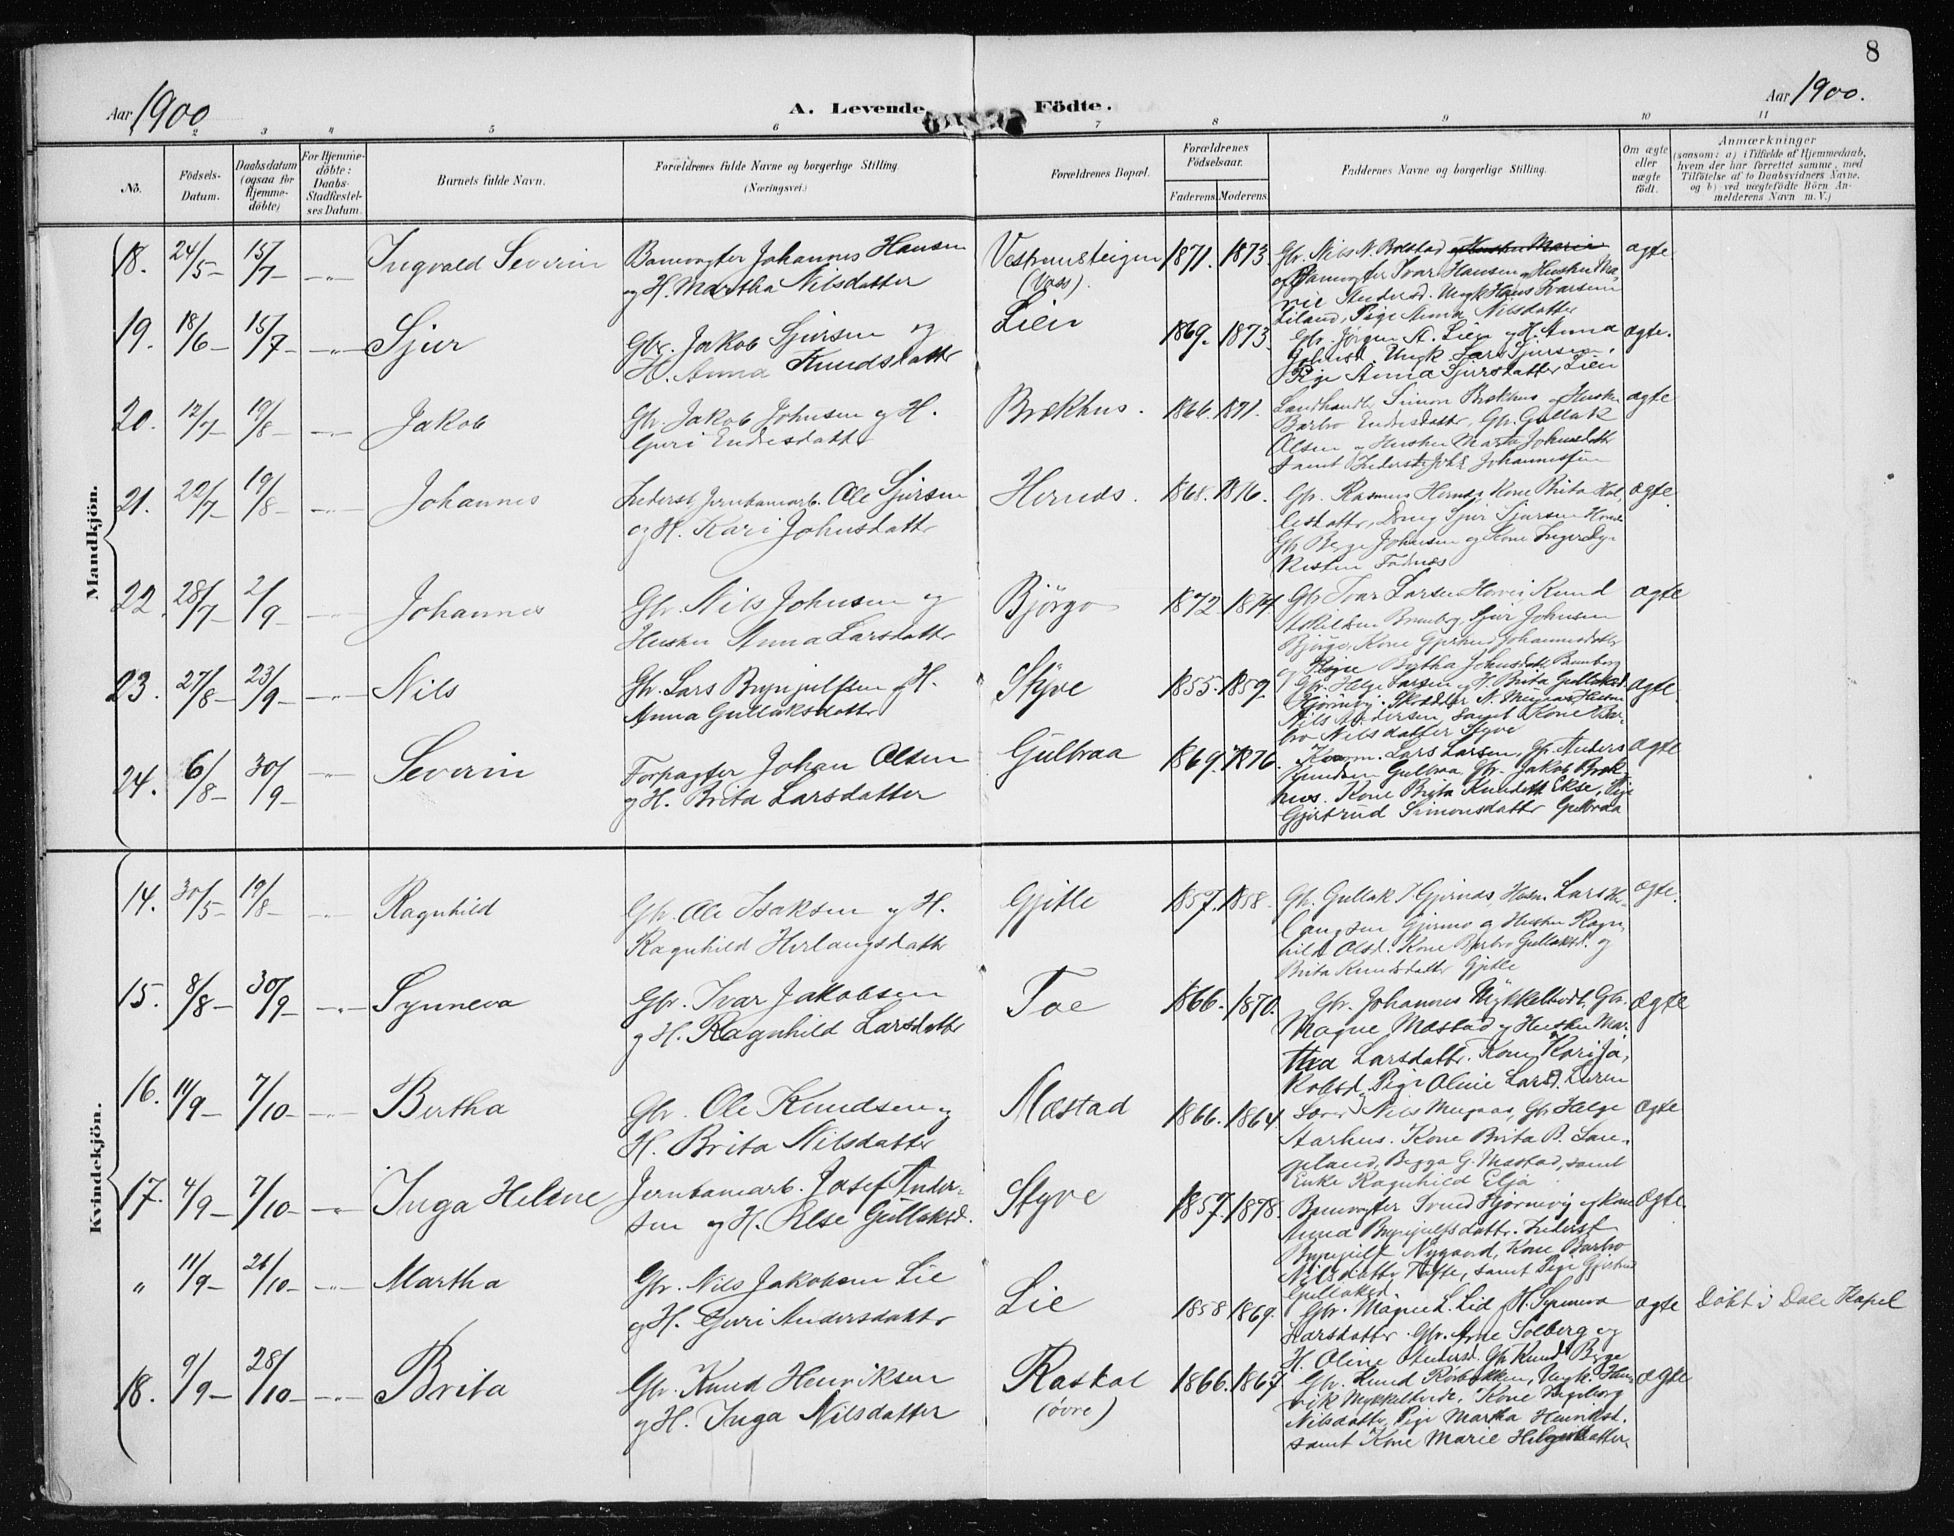 8
Aar 1900
A. Levende Födte.
Aar 1900.
2 3 4 5 6 7 8 9 10 11
No.
Födsels-Datum.
Daabsdatum (ogsaa for Hjemme-döbte)
For Hjemme-döbte: Daabs-Stadfæstel-ses Datum.
Barnets fulde Navn.
Forældrenes fulde Navne og borgerlige Stilling.
(Næringsvei.)
Forældrenes Bopæl.
Forældrenes Födselsaar.
Faderens. Moderens.
Faddernes Navne og borgerlige Stilling.
Om ægte eller uægte födt.
Anmærkninger
(saasom: a) i Tilfælde af Hjemmedaab, hvem der har forrettet samme, med Tilföielse af to Daabsvidners Navne, og b) ved uægtefödte Börn Anmelderens Navn m.V.)
Mandkjön.
18. 24/5 15/7 Ingvald Severin
Banevogter Johannes Hansen
og H. Martha Nilsdatter
(Voss).
1871. 1873.
Gbr. Nils N. Bolstad
Banevogter Ivar Hansen og Hustru Ma-
rie Andersd. Ungk Hans Ivarsen
Liland, Pige Anna Nilsdatter
ægte
19. 18/6 15/7 Sjur
Gbr. Jakob Sjursen og
H. Anna Knudsdatter
Lien
1869. 1873.
Gbr. Jørgen A. Lien og H. Anna
Johnsd. Ungk Lars Sjursen,
Pige Anna Sjursdatter Lien
ægte.
20. 12/7 19/8 Jakob
Gbr. Jakob Johnsen og H.
Guri Endresdatter
Brækhus.
1866. 1871.
Landhandler Simon Brækhus og Hustru
Barbro Endresdatter, Gbr. Gullak
Olsen og Hustru Marta Johnsdatter
samt Inderst Johs Johannessen
ægte
21. 22/7 19/8 Johannes
Inderst Jernbanearb. Ole Sjursen
og H. Kari Johnsdatter
Hernæs.
1868. 1876.
Gbr. Rasmus Hernæs, Kone Brita Hal-
lesdatter, Sjur Sjursen
Gbr Berge Johnsen og Kone Inger
ægte
22. 28/7 2/9 Johannes
Gbr. Nils Johnsen og
Hustru Anna Larsdatter
Bjørgo
1872 1874
Gbr Ivar Larsen Horvei Knud
Sjur Johnsen
Bjørgo, Kone Gjertrud Johannesdatter
Pige Brytha Johnsdatter
ægte
23. 27/8 23/9 Nils
Gbr. Lars Brynjulfsen og H.
Anna Gullaksdatter
Styve
1855. 1859.
Gbr. Helge Larsen og H. Brita Gullaksd.
Hjørnevig. Skrædder N. Mugaas,
Nils Andersen, samt Kone Bar-
bro Nilsdatter Styve
ægte
24. 6/8 30/9 Severin
Forpagter Johan Olsen
og H. Brita Larsdatter
Gulbraa
1869. 1876.
Lars Larsen, Gbr. Anders
Knudsen Gulbraa, Gbr. Jakob Bræk-
hus. Kone Brita Knudsdt Ekse, Pige
Gjertrud Simonsdatter Gulbraa
ægte
Kvindekjön.
14. 30/5 19/8 Ragnhild
Gbr. Ole Isaksen og H.
Ragnhild Herlaugsdatter
Gjitle
1857. 1858.
Gbr. Gullak I Gjernæs, Lars
og Hustru Ragn-
hild Olsd. Kone Barbro Gullaksd. og
Brita Knudsdatter Gjitle
ægte.
15. 8/8 30/9 Synneva
Gbr. Ivar Jakobsen
og H. Ragnhild Larsdatter
Toe
1866. 1870.
Gbr. Johannes Mykkeltvedt, Gbr.
Magne Mæstad og Hustru Mar-
tha Larsdatter. Kone Kari Ja-
kobsd, Pige Oline Larsd.
ægte
16. 11/9 7/10 Bertha
Gbr. Ole Knudsen og
H. Brita Nilsdatter
Mæstad
1866. 1864.
Nils Mugaas, Gbr Helge
Aarhus. Kone Brita B. Lan-
geland, Begga G. Mæstad, samt
Enke Ragnhild
ægte
17. 4/9 7/10 Inga Helene
Jernbanearb. Josef Ander-
sen og H. Else Gullaksd.
Styve
1857. 1878.
Banevogter Hjørnevig og Kone
Brynjulfsdatter. Inderst
Brynjulf Nygaard, Kone Barbro
Nilsdatter Tufte, samt Pige Gjertrud
Gullaksd
ægte.
" 11/9 26/10 Martha
Gbr. Nils Jakobsen Lie
og H. Guri Andersdatter
Lie
1858 1869.
Gbr. Magne L. Lid, H. Synneva
Larsdatter. Gbr. Arne Solberg og
H. Oline Andersd. Gbr Knud Berge
ægte
Döbt i Dale Kapel
18. 9/9 28/10 Brita
Gbr. Knud Henriksen
og H. Inga Nilsdatter
Raskal
(övre)
1866. 1867
Gbr. Knud Ungk. Hen-
rik Mykkeltvedt, Kone Ingeborg
Nilsdatter, Pige Martha Henriksd.
samt Kone Marie Helgesdatter.
ægte